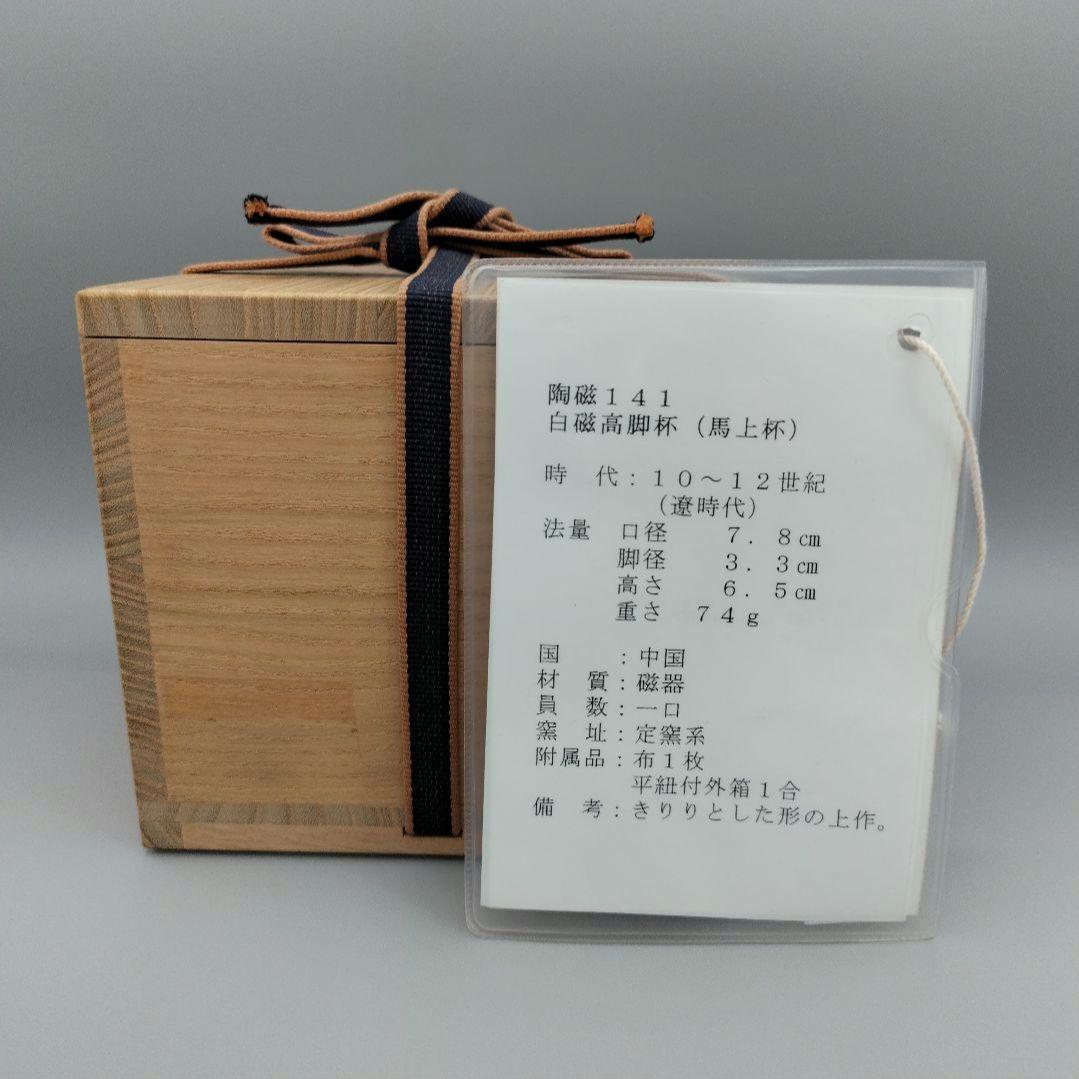 陶磁１４１
白磁高脚杯（馬上杯）
時　代：１０～１２世紀
（遼時代）
法量　口径　　７．８㎝
脚径　　３．３㎝
高さ　　６．５㎝
重さ　７４ｇ
国　　：中国
材　質：磁器
員　数：一口
窯　址：定窯系
附属品：布１枚
平紐付外箱１合
備　考：きりりとした形の上作。